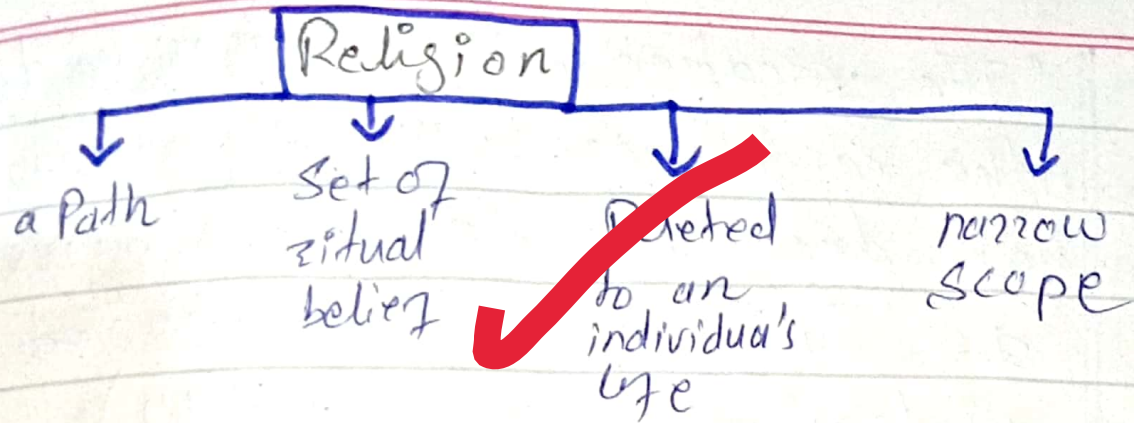 Religion
a Path
Set of
ritual
belief
to an
individua's
life
narrow
scope